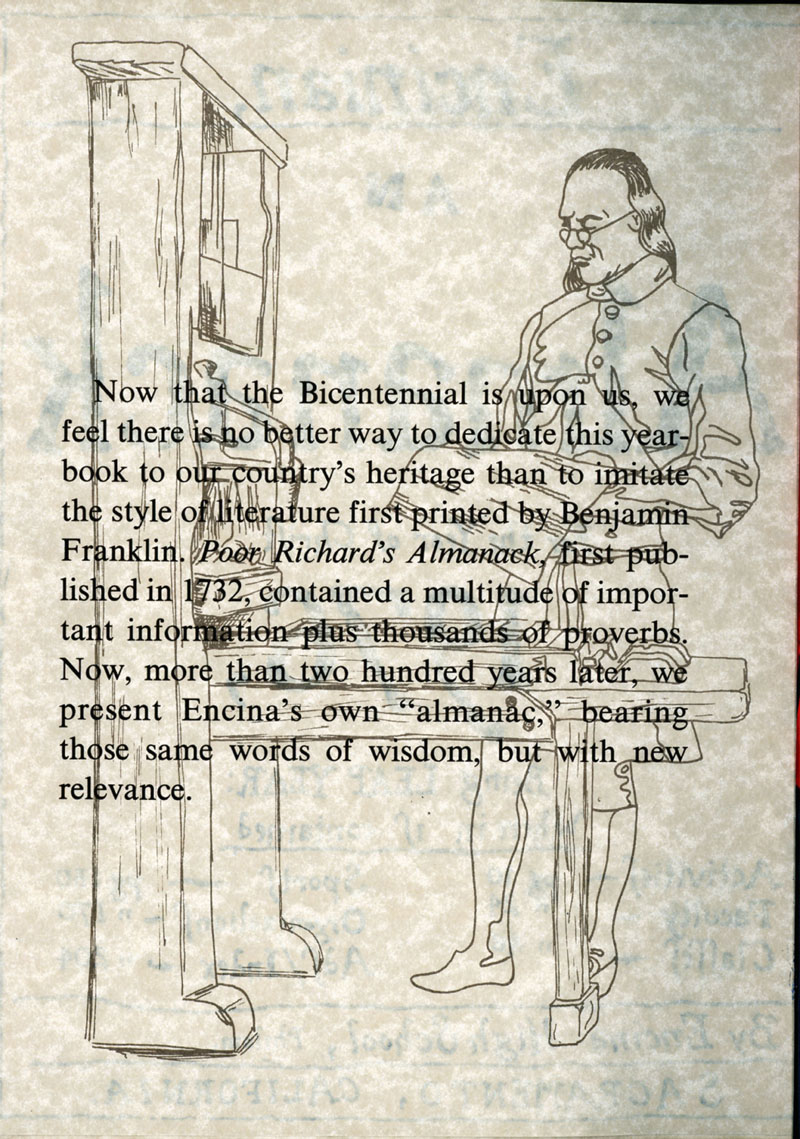 Now that the Bicentennial is upon us, we
feel there is no better way to dedicate this year-
book to our country's heritage than to imitate
the style of literature first printed by Benjamin
Franklin. Poor Richard's Almanack, first pub-
lished in 1732, contained a multitude of impor-
tant information plus thousands of proverbs.
Now, more than two hundred years later, we
present Encina's own “almanac,” bearing
those same words of wisdom, but with new
relevance.